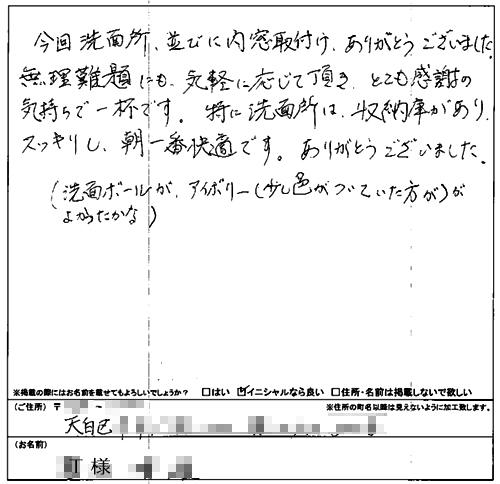 今回洗面所、並びに内窓取付け、ありがとうございました
無理難題にも、気軽に応じて頂き、とても感謝の
気持ちで一杯です。特に洗面所は、収納庫があり、
スッキリし、朝一番快適です。ありがとうございました。
(洗面ボールが、アイボリー(少し色がついていた方が)が
よかったかな)
※掲載の際にはお名前を載せてもよろしいでしょうか? □はい ☑イニシャルなら良い □住所・名前は掲載しないで欲しい
(ご住所) 〒 - ※住所の町名以降は見えないように加工致します。
天白区
(お名前)
様